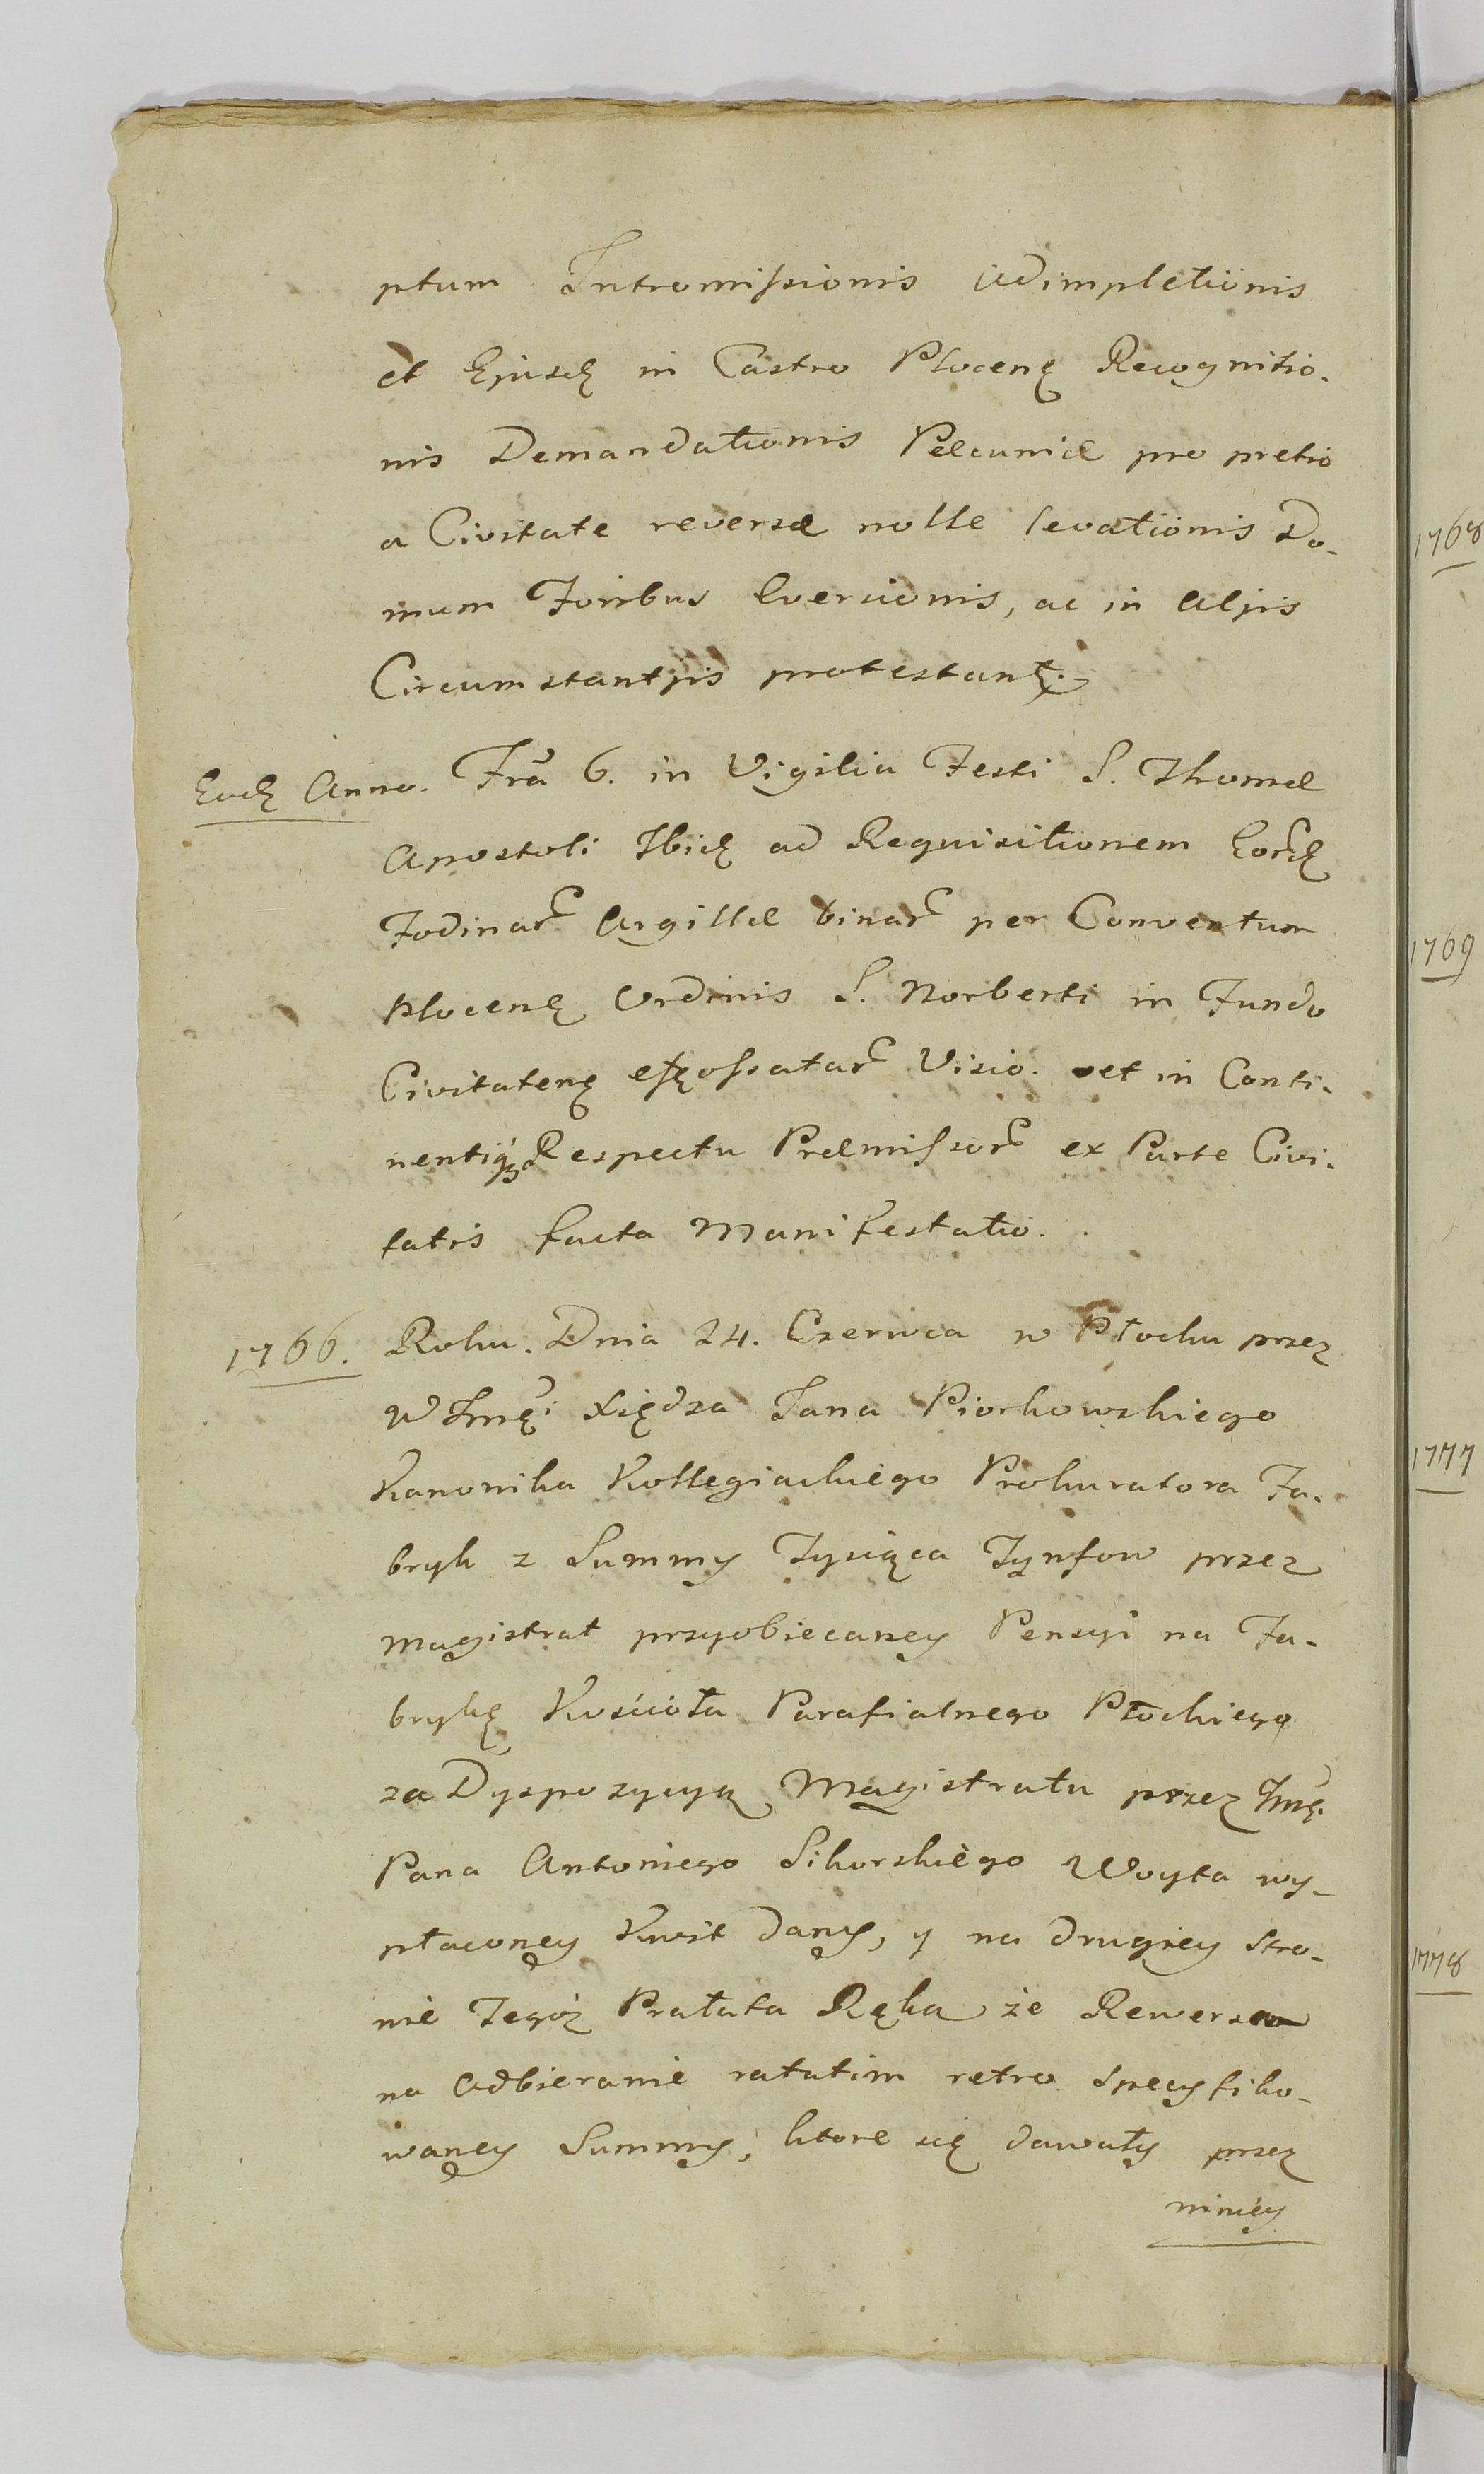 ptum Intromissionis adimpletionis
et Ejusdę in Castro Plocenę Recognitio-
nis Demandationis Pecuniæ pro pretio
a Civitate reversæ nolle levationis Do-
mum Foribus Eversionis, ac in aljis
Circumstantjis protestant.
Eodę Anno. Fra 6. in Vigilia Festi S. Thomæ
Apostoli Ibidę ad Requisitionem Eordę
Fodinar Argillæ binar per Conventum
Plocenę Ordinis S. Norberti in Fundo
Civitatenę effossatar Visio. et in Conti-
nentiq Respectu Præmissor ex Parte Civi-
tatis facta Manifestatio.
1766. Roku. Dnia 24. Czerwca w Płocku przez
W Imę Xiędza Jana Piorkowskiego
Kanonika Kollegiackiego Prokuratora Fa-
bryk z Summy Tysiąca Tynfow przez
Magistrat przyobiecaney Pensyi na Fa-
brykę Kościoła Parafialnego Płockiego
za Dyspozycyą Magistratu przez Imę.
Pana Antoniego Sikorskiego Woyta wy-
płaconey Kwit dany, y na drugiey Stro-
nie Tegoż Prałata Ręka że Rewersa
na Odbieranie ratatim retro specyfiko-
waney Summy, ktore się dawały przez
niniey
1768
1769
1777
1778